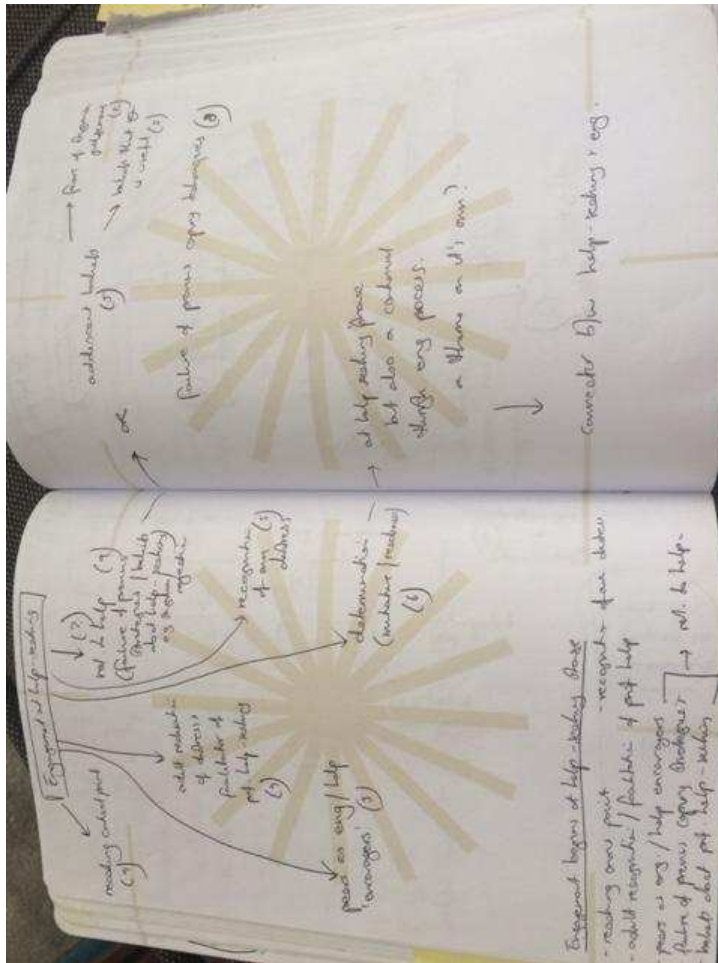 Engagement at help-seeking
reaching crisis point
(4)
adult recognition
of distress,
facilitator of
prof help-seeking
(5)
peers as eng/help
'encouragers' (3)
(?)
rel. to help (9)
(failure of previous
strategies / beliefs
about help-seeking
recognition
of own (5)
distress
determination
(motivation/readiness)
(6)
Engagement begins at help-seeking phase
- reaching crisis point - recognition of own distress
- adult recognition / facilitator of prof help
- peers as eng / help encouragers
- failure of previous coping strategies → rel. to help-
- beliefs about prof help-seeking
adolescent beliefs
(5)
→ fear of
→ beliefs that
(2)
or
failure of previous coping techniques (8)
→ at help seeking phase
but also a continual
through eng process.
a theme on it's own?
↓
Connector b/w help-seeking + eng.